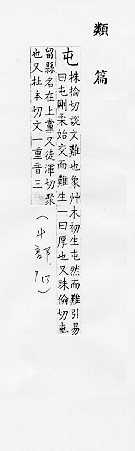 類篇
屯 株倫切說文難也象艸木初生屯然而難引易
曰屯剛柔始交而難生一曰厚也又殊倫切
留縣名在上黨又徒渾切聚
也又杜本切文一重音三